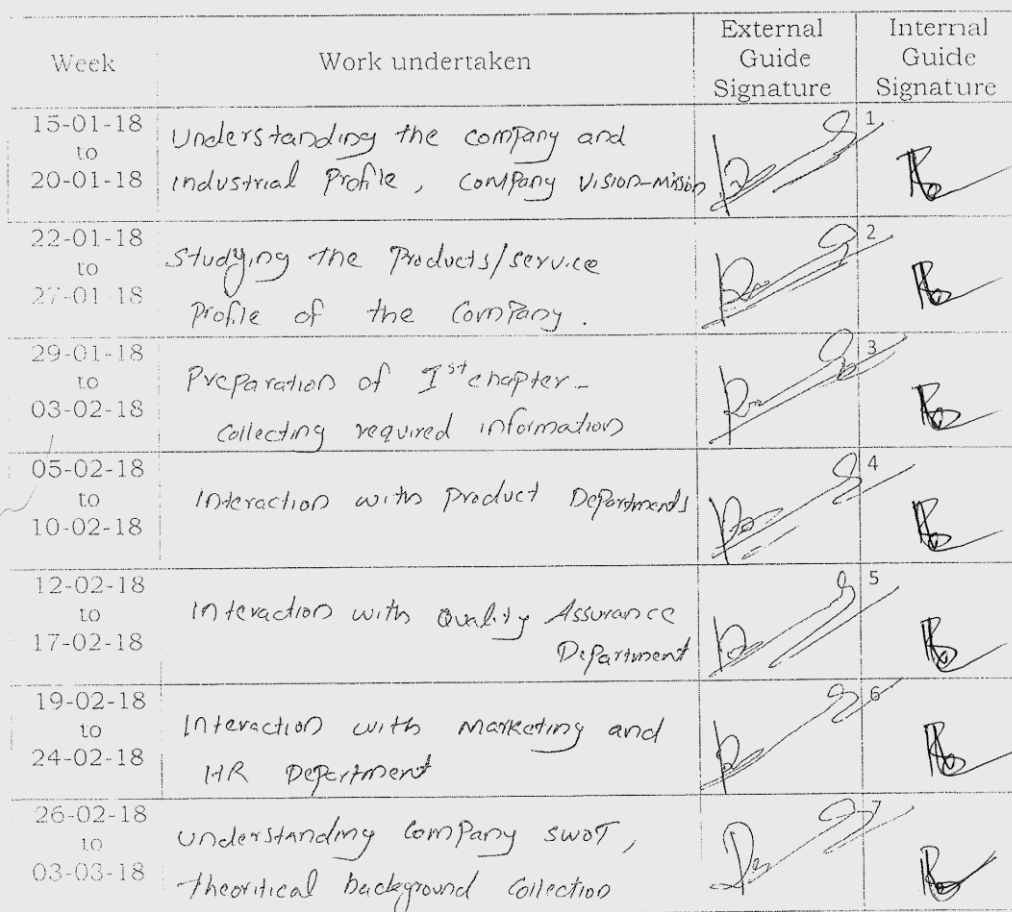 Week Work undertaken External Guide Signature Internal Guide Signature
15-01-18
to
20-01-18
Understanding the company and
industrial Profile, Company Vision-Mission
1
22-01-18
to
27-01-18
Studying the Products/service
Profile of the Company.
2
29-01-18
to
03-02-18
Preparation of Ist chapter-
collecting required information
3
05-02-18
to
10-02-18
Interaction with product Departments
4
12-02-18
to
17-02-18
Interaction with Quality Assurance
Department
5
19-02-18
to
24-02-18
Interaction with Marketing and
HR Department
6
26-02-18
to
03-03-18
understanding Company SWOT,
theoritical background Collection
7